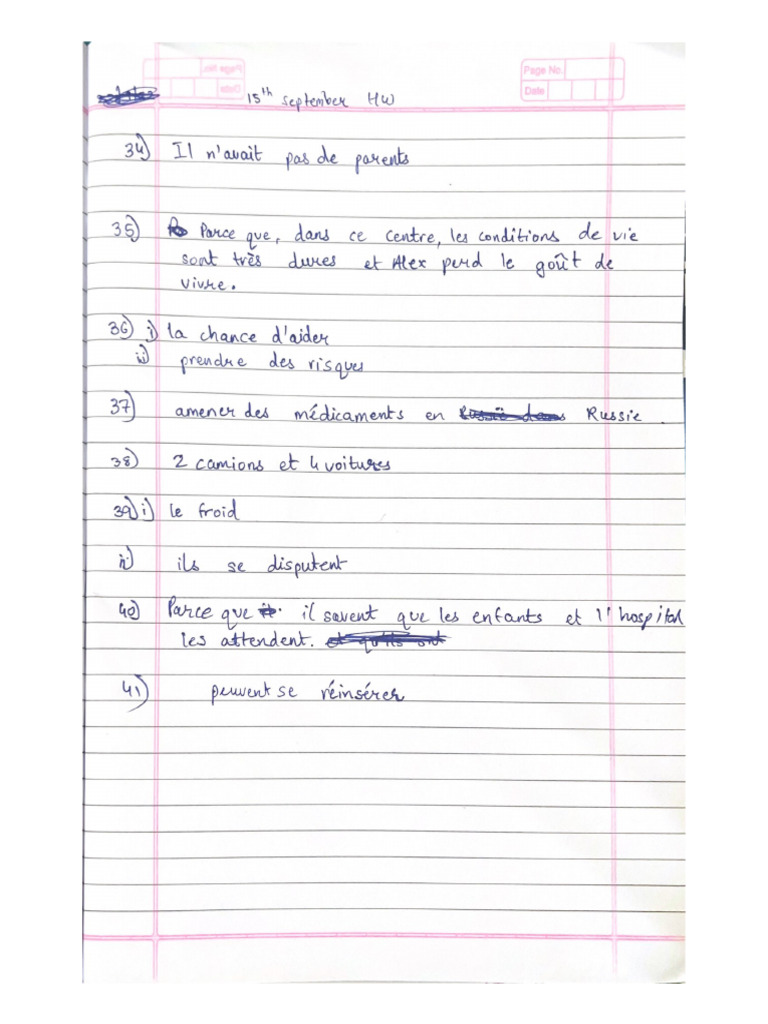 Page No.
Date
15th september HW
34) Il n'avait pas de parents
35) Parce que, dans ce centre, les conditions de vie
sont très dures et Alex perd le goût de
vivre.
36) i) la chance d'aider
ii) prendre des risques
37) amener des médicaments en Russie.
38) 2 camions et 4 voitures
39) i) le froid
ii) ils se disputent
40) Parce que il savent que les enfants et l'hospital
les attendent.
41) peuvent se réinsérer